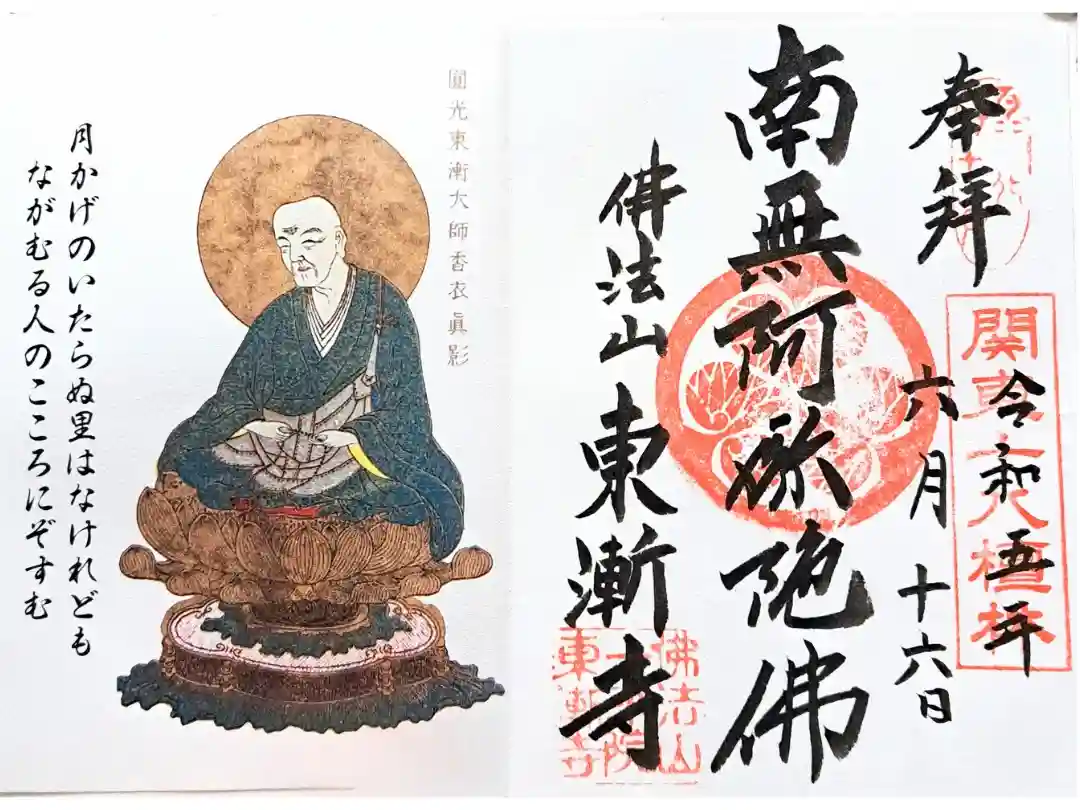 奉拝
関東十八檀林
令和五年
六月十六日
南無阿弥陀佛
佛法山東漸寺
佛法山
一乗院
東漸寺
圓光東漸大師香衣眞影
月かげのいたらぬ里はなけれども
ながむる人のこころにぞすむ